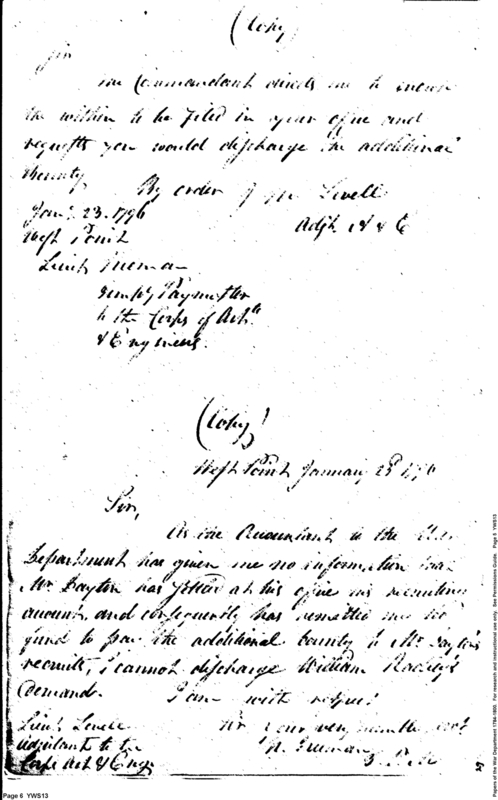 (Copy)
Sir
The Commandant directs me to
the within to be filed in your office and
requests you would discharge the additional
Bounty
By order of M Lovell
Jany. 23. 1796
Adjt. A & E
West Point
Lieut Freeman
Paymaster
to the Corps of Art.
& Engineers.
(Copy)
West Point January 23d 1796
Sir,
As the Accountant to the
Department has given me no information that
Mr. Dayton has settled at his office his recruiting
account, and consequently has remitted me no
fund to pay the additional bounty to Mr. Dayton's
recruits, I cannot discharge William
demand.
I am with respect
Lieut Lovell
Yr your very humble
Adjutant to the
N. Freeman
Corps Art & Engr
Page 6 YWS13
Papers of the War Department 1784-1800. For research and instructional use only. See Permissions Guide. Page 6 YWS13